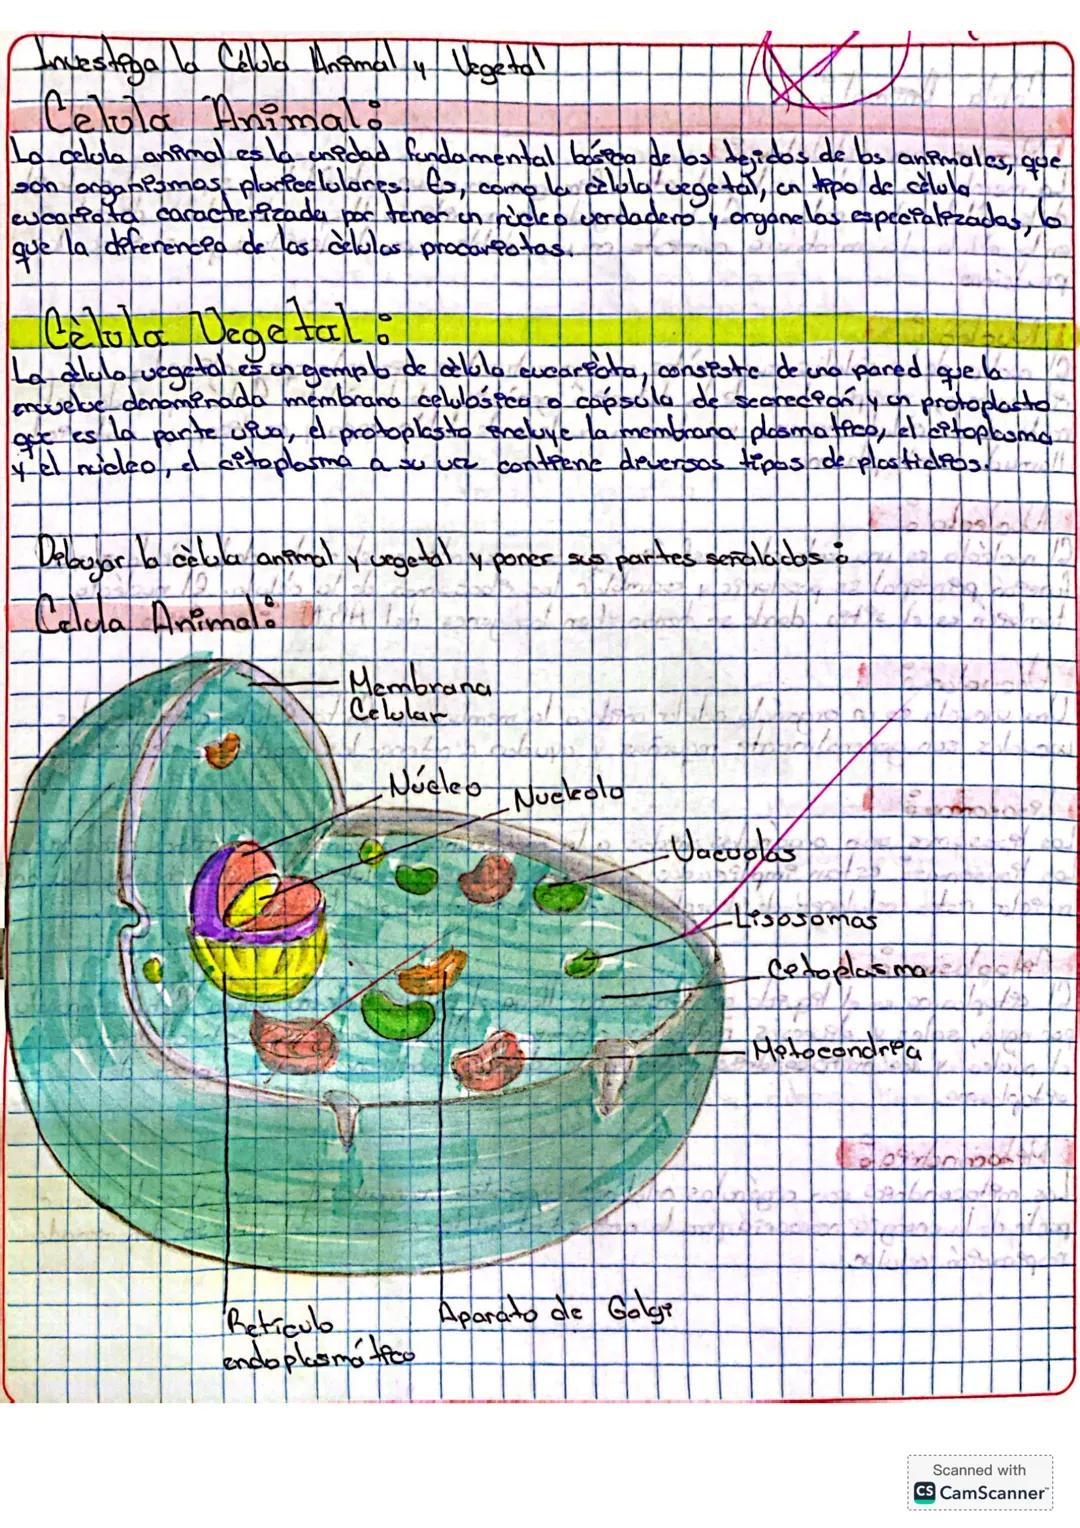 Investiga la Célula Animal y Vegetal
Celula Animal:
La celula animal es la unidad fundamental básica de los tejidos de los animales, que
son organismos pluricelulares. Es, como la cèlula vegetal, un tipo de cèlula
eucariota caracterizada por tener un nùcleo verdadero y organelas especializadas, lo
que la diferencia de las cèlulas procariotas.
Cèlula Vegetal:
La cèlula vegetal es un ejemplo de cèlula eucariòta, consiste de una pared que la
envuelve denominada membrana celulósica o cápsula de secreción y un protoplasto
que es la parte viva, el protoplasto incluye la membrana plasmatica, el citoplasma
y el nùcleo, el citoplasma a su vez contiene diversos tipos de plastidios.
Dibujar la cèlula animal y vegetal y poner sus partes señaladas:
Celula Animal:
Membrana
Celular
Núcleo
Nucleolo
Vacuolas
Lisosomas
Citoplasma
Mitocondria
Retículo
endoplasmático
Aparato de Golgi
Scanned with
CS CamScanner